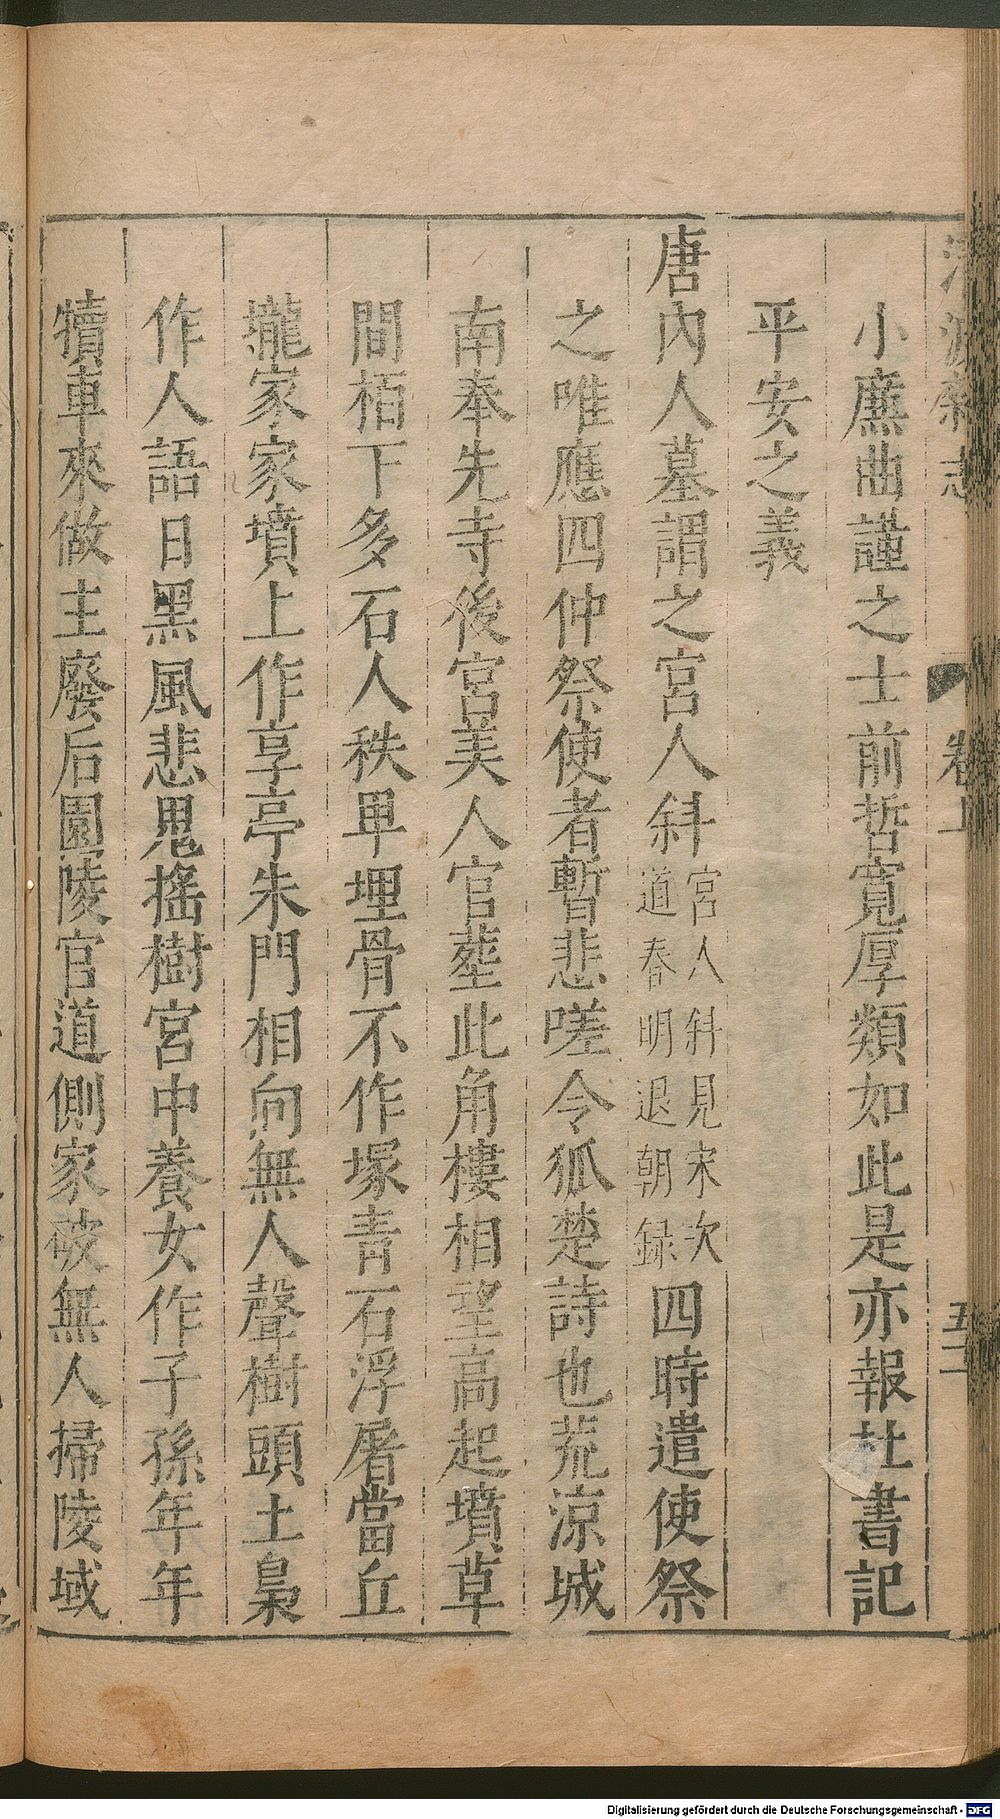 小廉曲謹之士前哲寬厚類如此是亦報杜書記
平安之義
唐內人墓謂之宮人斜宮人斜見宋次道春明退朝録四時遣使祭
之唯應四仲祭使者暫悲嗟令狐楚詩也荒涼城
南奉先寺後宮美人官塟此角樓相望高起墳草
間栢下多石人秩卑埋骨不作塚青石浮屠當丘
壠家家墳上作享亭朱門相向無人聲樹頭土梟
作人語日黑風悲鬼搖樹宮中養女作子孫年年
犢車來做主廢后園陵官道側家破無人掃陵域
卷上
五二
Digitalisierung gefördert durch die Deutsche Forschungsgemeinschaft - DFG